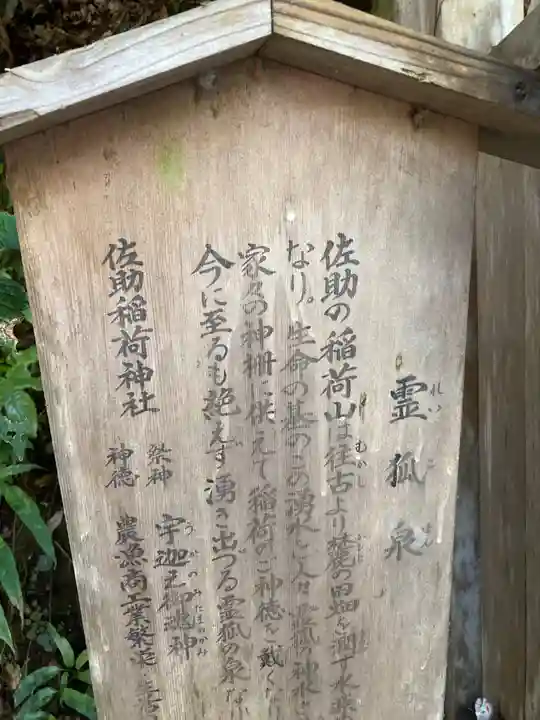 霊狐泉
れいこせん
佐助の稲荷山は往古より麓の田畑を潤す水
なり。生命の基のこの湧水を人々霊狐の神水
家々の神棚に供えて稲荷のご神徳を戴く
今に至るも絶えず湧き出づる霊狐の泉なり
佐助稲荷神社
祭神 宇迦之御魂神
うかのみたまのかみ
神徳 農漁商工業繁栄・生活